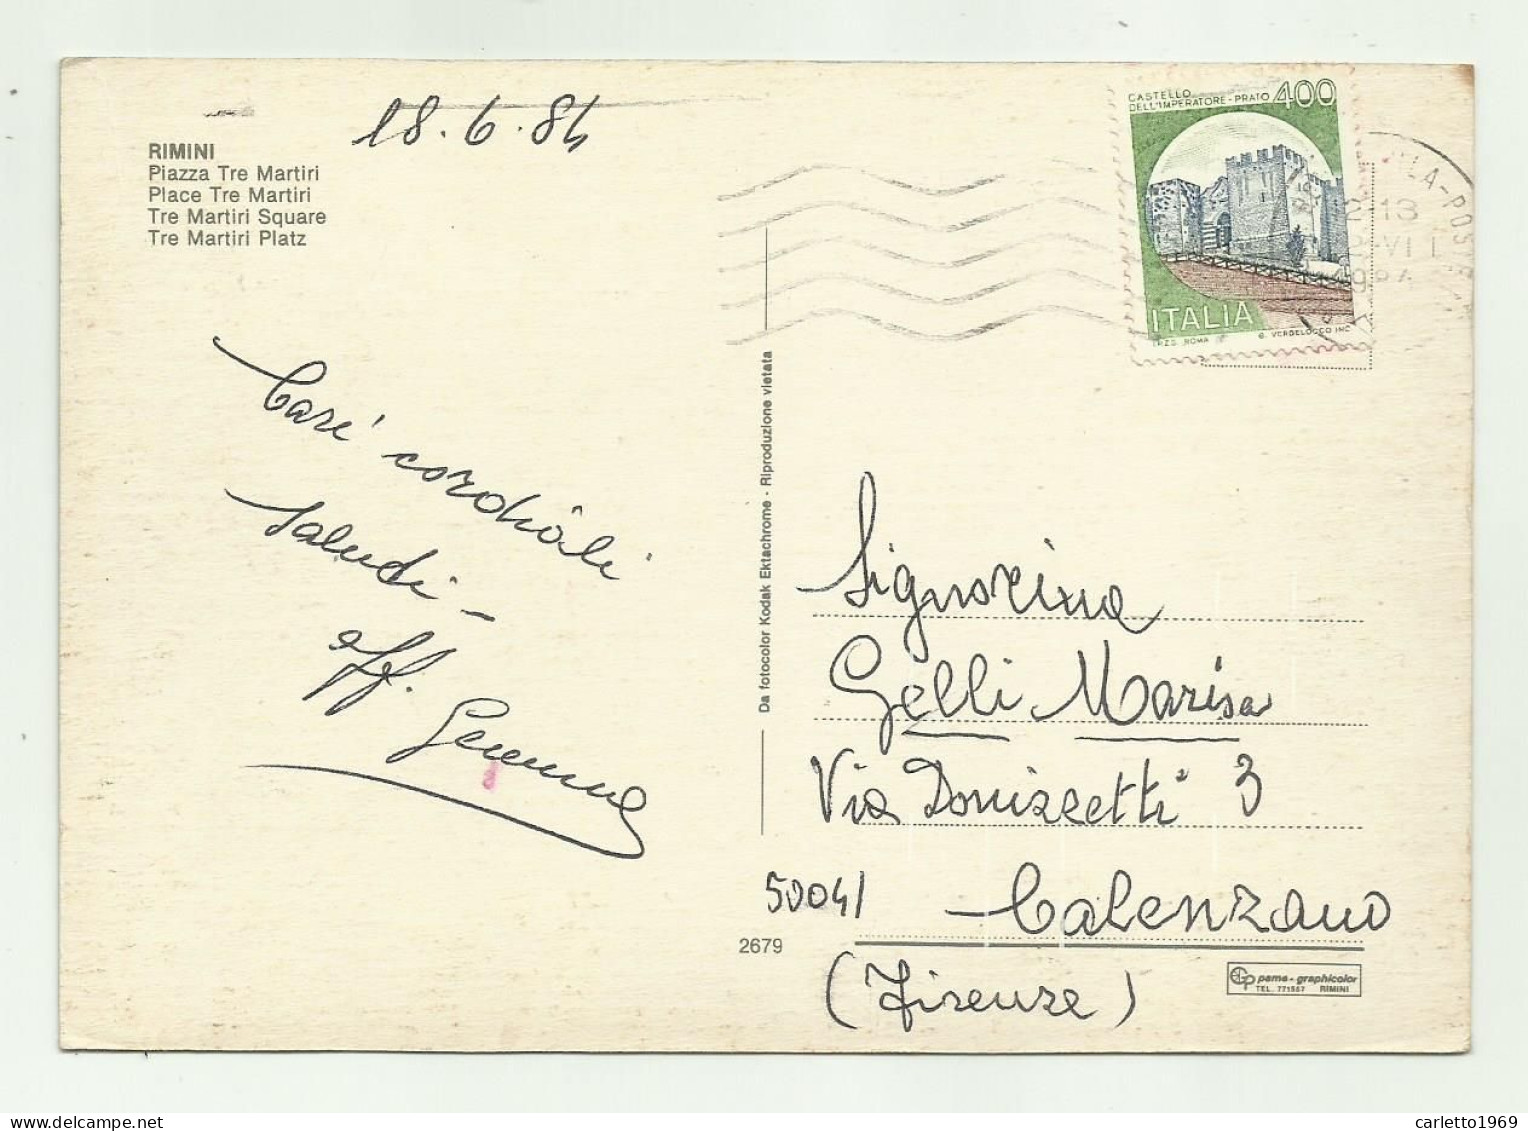 RIMINI
Piazza Tre Martiri
Place Tre Martiri
Tre Martiri Square
Tre Martiri Platz
18.6.84
Cari cordiali
saluti -
aff.
CASTELLO
DELL'IMPERATORE - PRATO 400
ITALIA
I.P.Z.S. ROMA E. VERDELOCCO INC.
Da fotocolor Kodak Ektachrome - Riproduzione vietata
Signorina
Gelli Marisa
Via Donizzetti 3
50041 Calenzano
(Firenze)
2679
pama - graphicolor
TEL. 771567 RIMINI
carletto1969